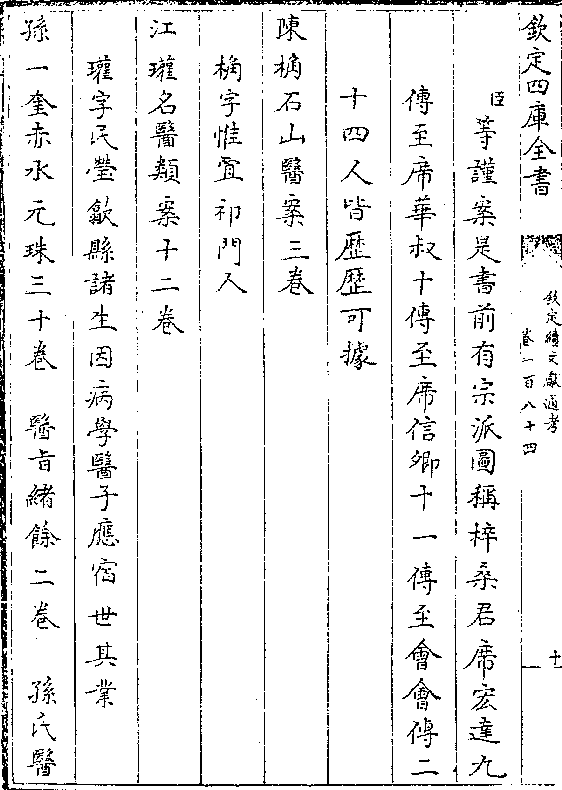 欽定四庫全書
欽定續文獻通考
卷一百八十四
十一
臣等謹案是書前有宗派圖稱梓桑君席宏達九
傳至席華叔十傳至席信卿十一傳至會會傳二
十四人皆歷歷可據
陳桷石山醫案三卷
桷字惟宜祁門人
江瓘名醫類案十二卷
瓘字民瑩歙縣諸生因病學醫子應宿世其業
孫一奎赤水元珠三十卷 醫旨緒餘二卷 孫氏醫